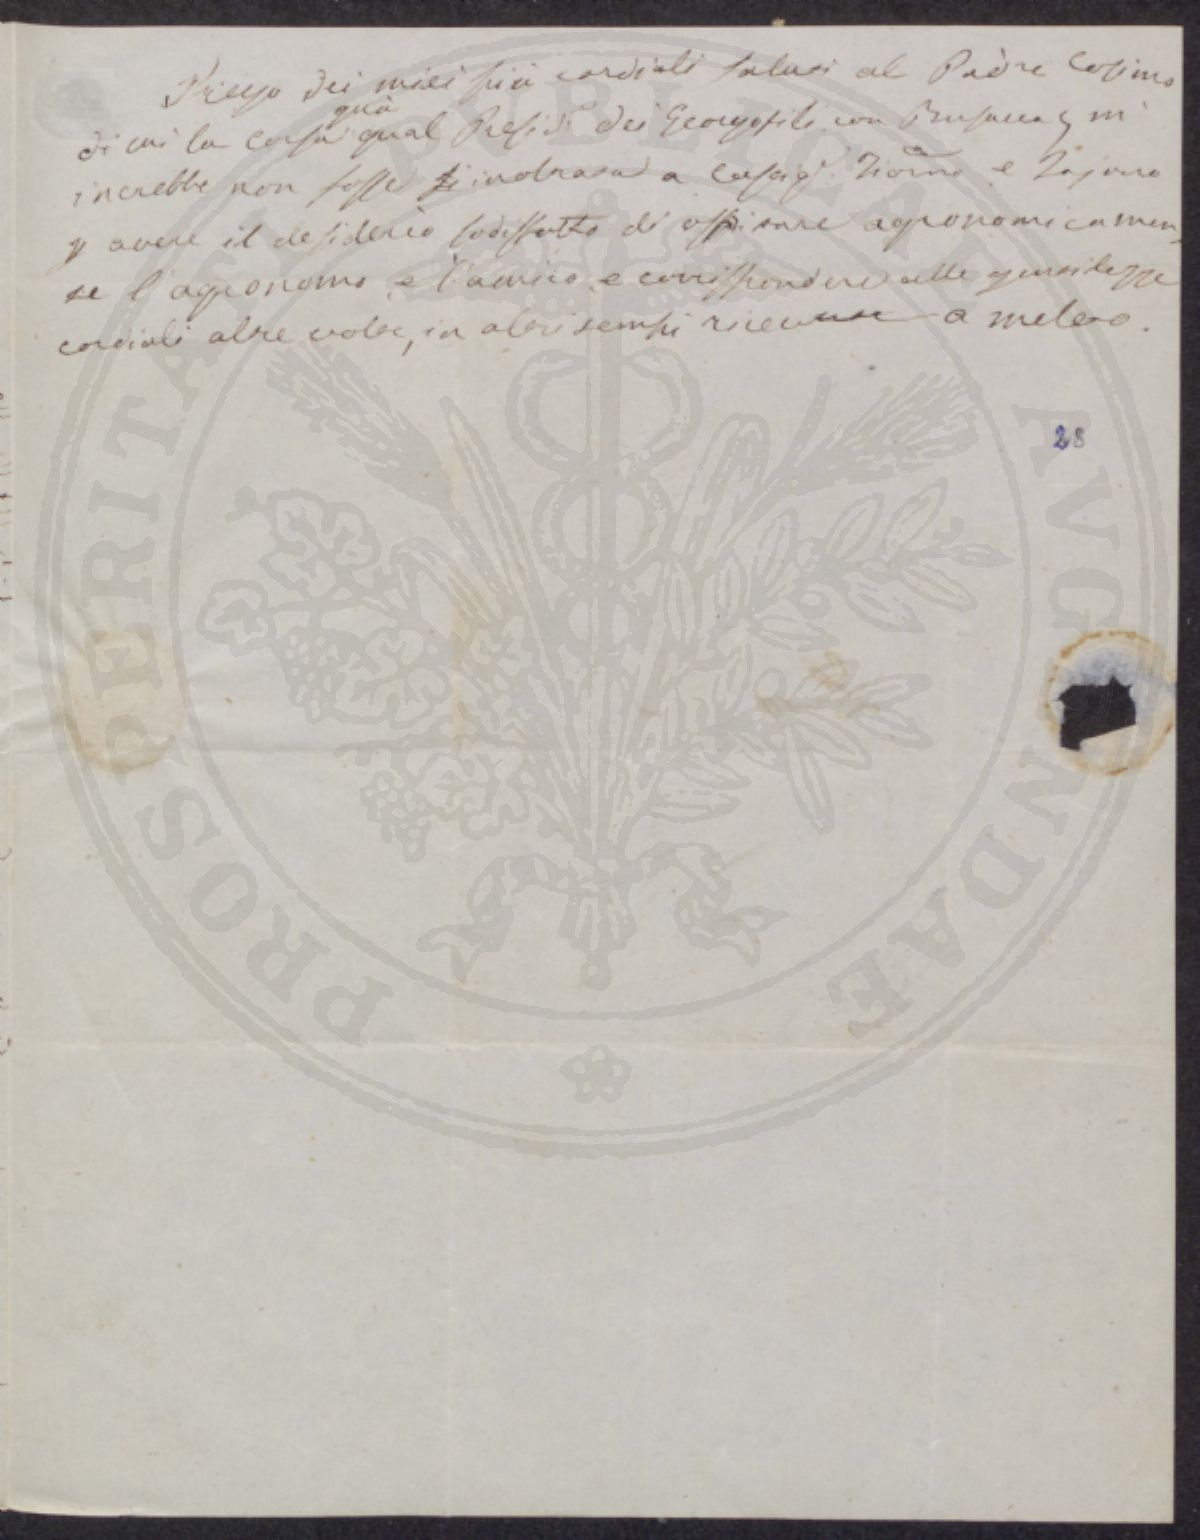 Priego dei miei più cordiali saluti al Padre Cosimo
quà
di cui la corsa qual Presid. dei Georgofili con
increbbe non fosse inoltrata a e
p avere il desiderio sodisfatto di agronomicamen,
te l'agronomo, e l'amico, e corrispondere alle gentilezze
cordiali altre volte, in altri tempi ricevute a meleto.
28
PROSPERITATI PUBLICAE AVGENDAE